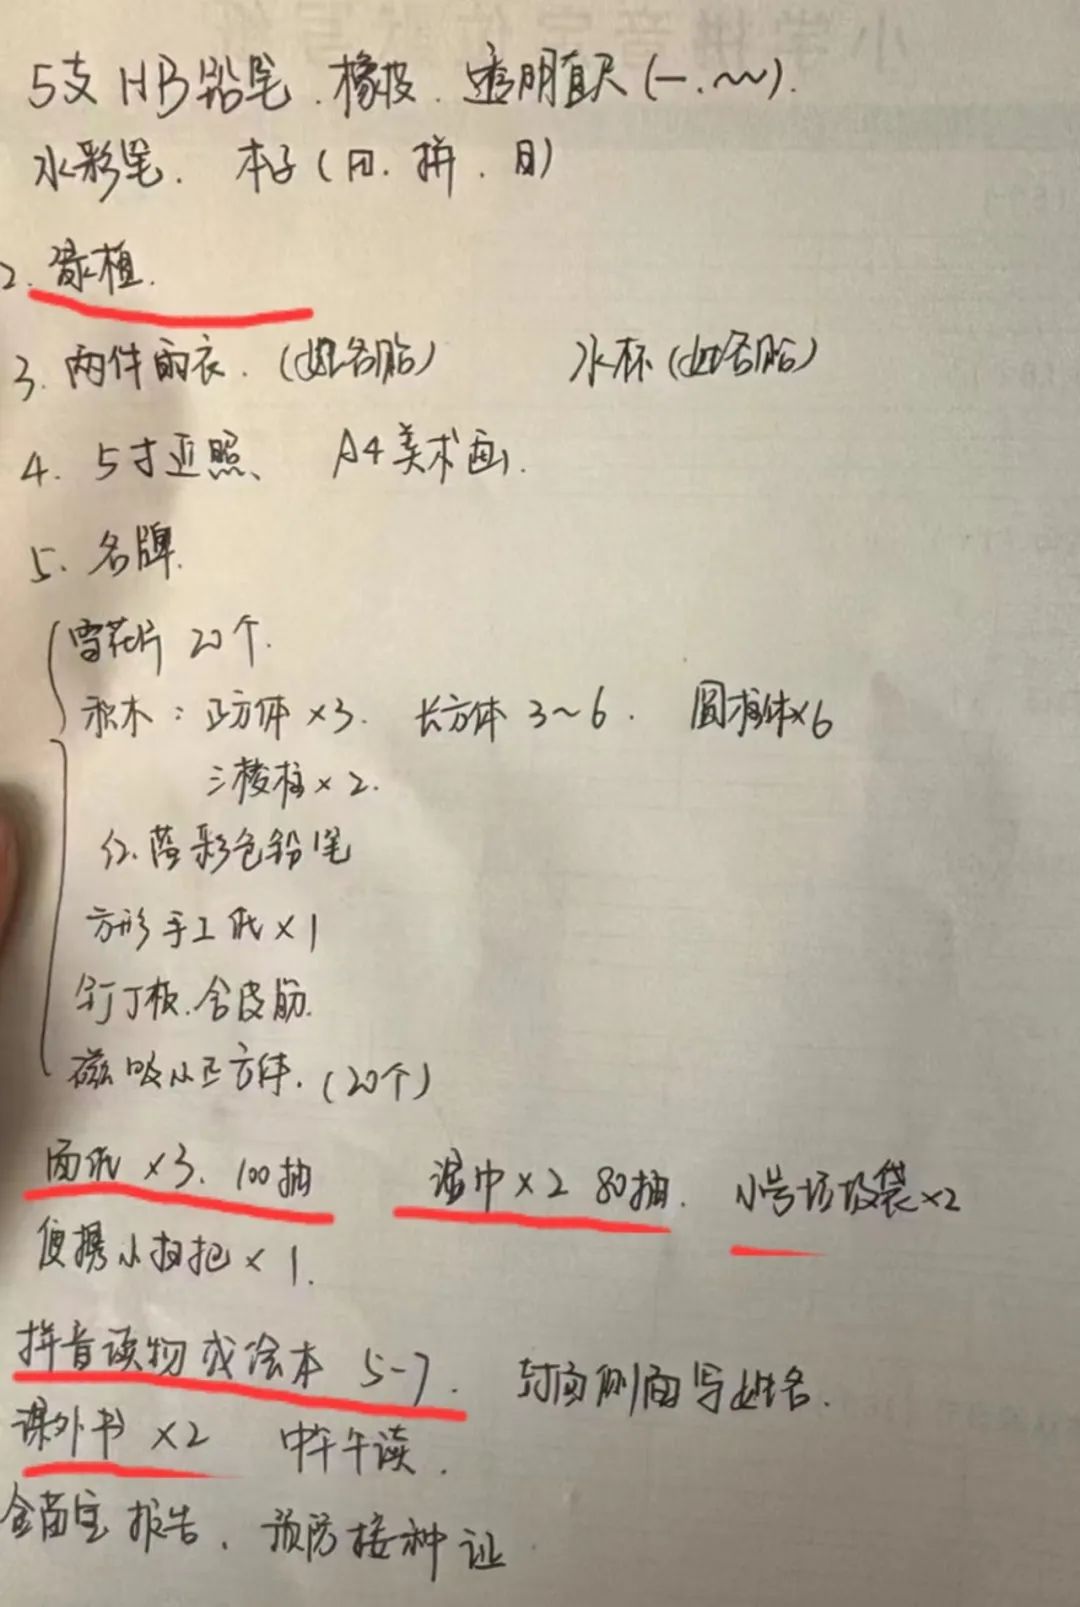 5支HB铅笔.橡皮.透明直尺(一.~~).
水彩笔. 本子(田.拼.日)
2.绿植.
3.两件雨衣.(姓名贴) 水杯(姓名贴)
4. 5寸亚照、 A4美术画.
5. 名牌.
雪花片 20个.
积木:正方体×3. 长方体3~6. 圆柱体×6
三棱柱×2.
红.蓝彩色铅笔
方形手工纸×1
钉丁板.含皮筋.
磁吸小正方体.(20个)
面纸×3. 100抽 湿巾×2 80抽. 小号垃圾袋×2
便携小扫把×1.
拼音读物或绘本 5-7. 封面侧面写姓名.
课外书×2 中午午读.
金苗宝报告. 预防接种证